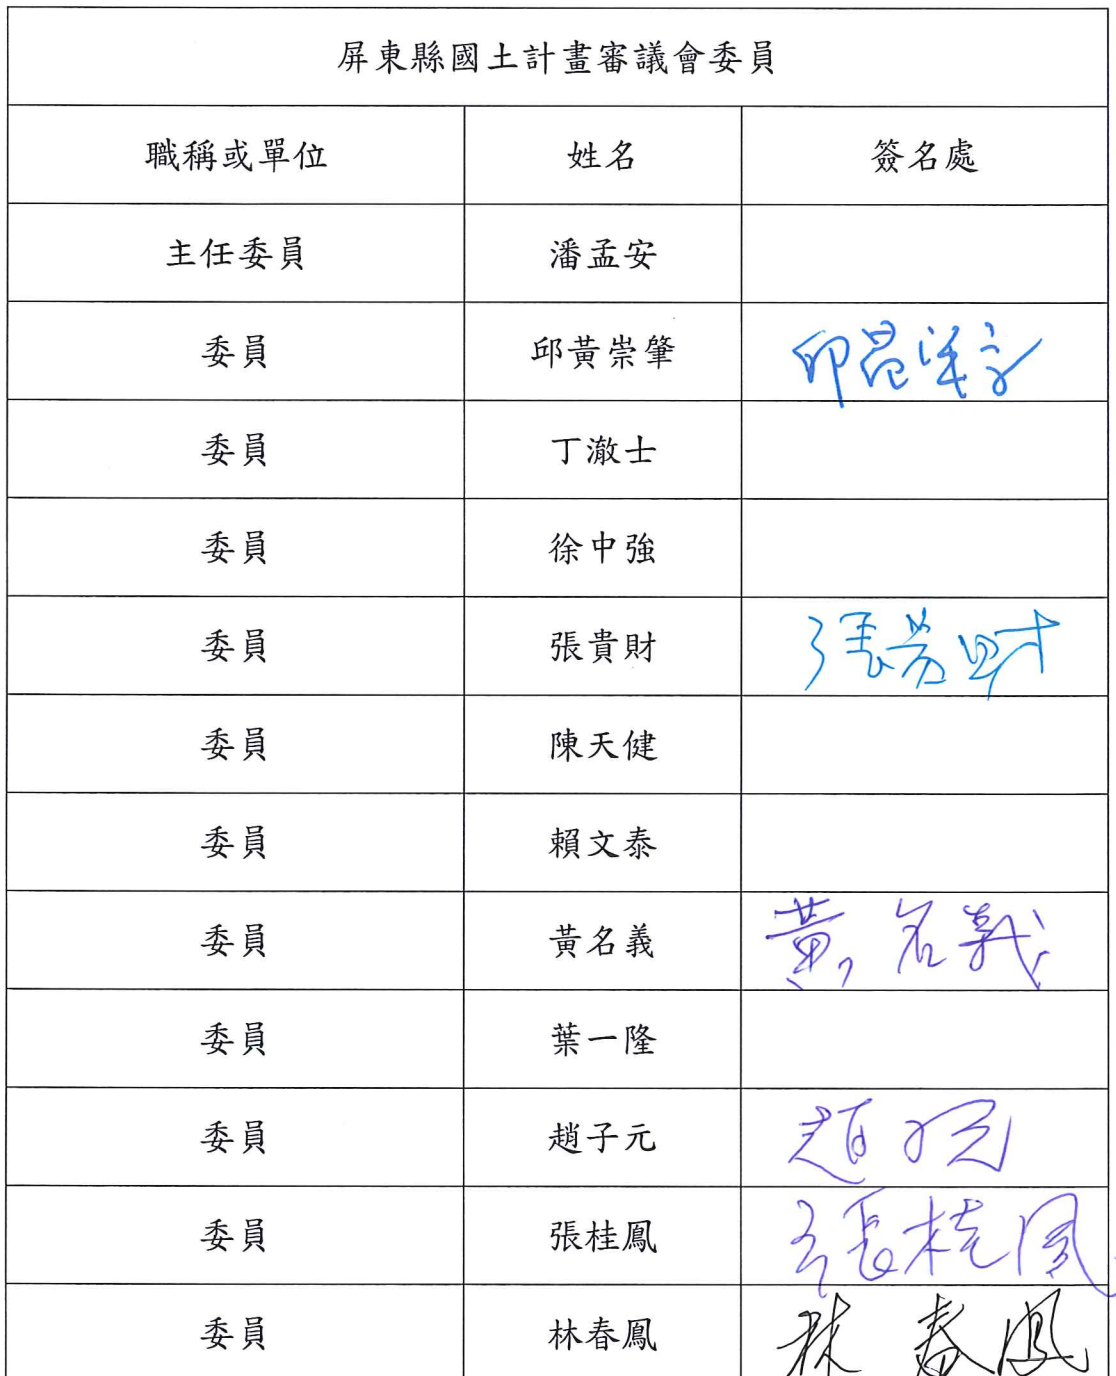 屏東縣國土計畫審議會委員
職稱或單位 姓名 簽名處
主任委員 潘孟安
委員 邱黃崇肇
委員 丁澈士
委員 徐中強
委員 張貴財 張貴財
委員 陳天健
委員 賴文泰
委員 黃名義 黃名義
委員 葉一隆
委員 趙子元 趙子元
委員 張桂鳳 張桂鳳
委員 林春鳳 林春鳳